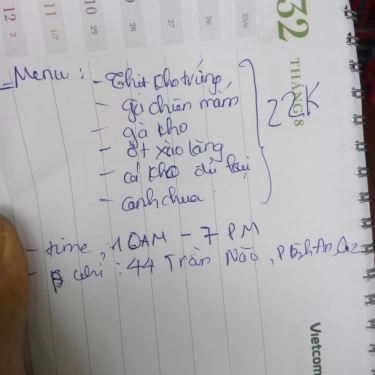 12 2
11 1/7
10 29
9
28
27
26
25/6
32
THÁNG 8
- Menu : - Thịt kho trứng,
- gà chiên mắm
- gà kho
- ớt xào lăng
- cá kho đủ loại
- canh chua
22K
- time, 10AM - 7 PM
- địa chỉ : 44 Trần Não, P Bình An, Q2
Vietcom